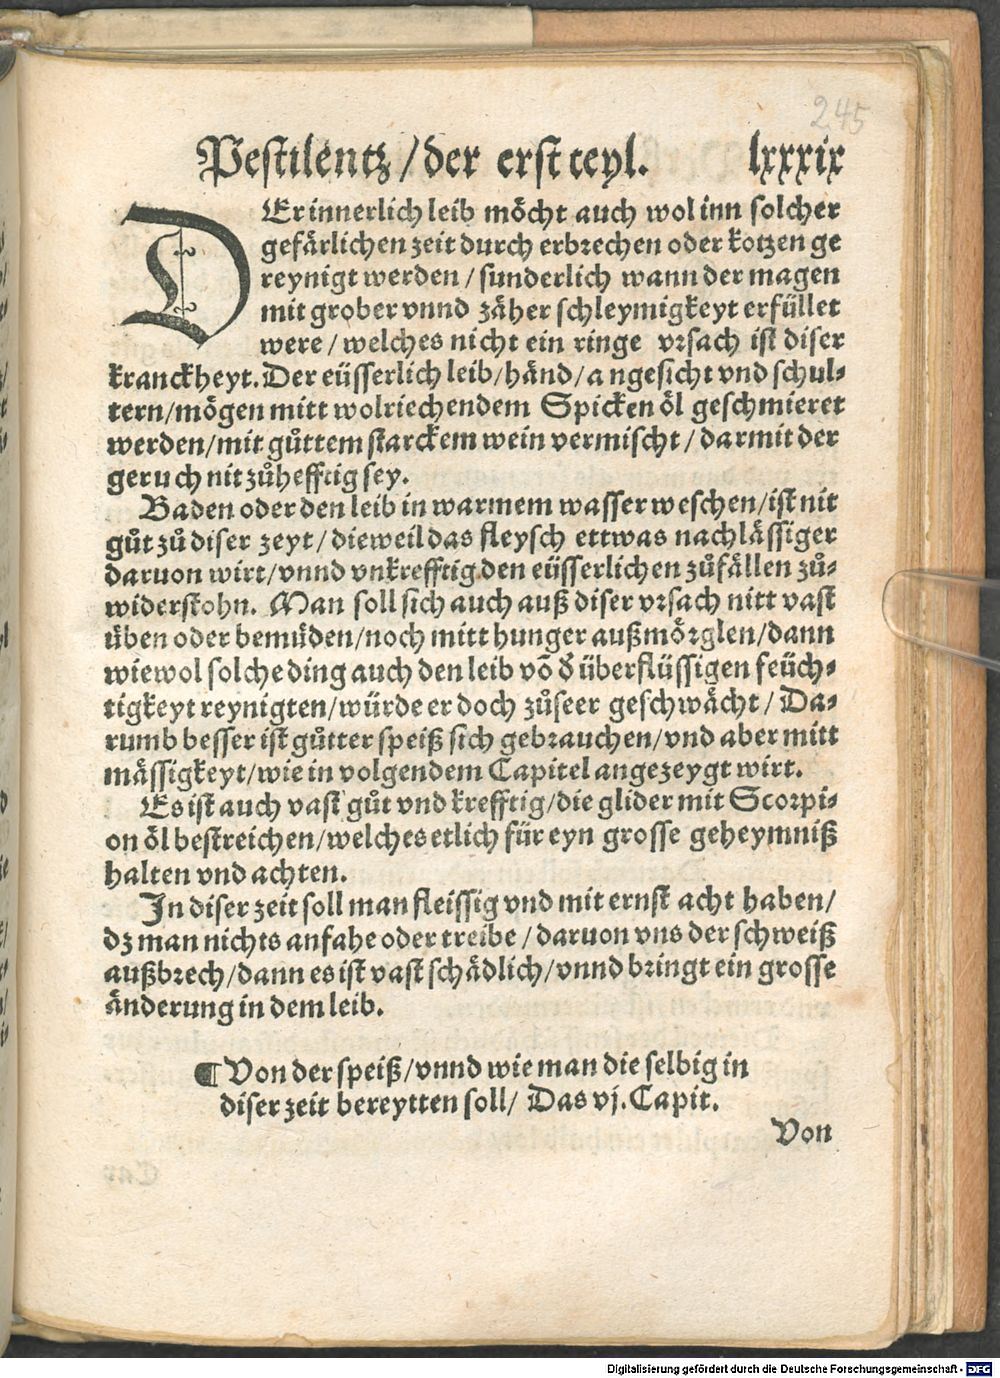 245
Pestilentz / der erst teyl. lxxxix
DEr innerlich leib möcht auch wol inn solcher
gefärlichen zeit durch erbrechen oder kotzen ge
reynigt werden / sunderlich wann der magen
mit grober vnnd zäher schleymigkeyt erfüllet
were / welches nicht ein ringe vrsach ist diser
kranckheyt. Der eüsserlich leib / händ / angesicht vnd schul-
tern / mögen mitt wolriechendem Spicken öl geschmieret
werden / mit gůttem starckem wein vermischt / darmit der
geruch nit zůhefftig sey.
Baden oder den leib in warmem wasser weschen / ist nit
gůt zů diser zeyt / dieweil das fleysch ettwas nachlässiger
daruon wirt / vnnd vnkrefftig den eüsserlichen zůfällen zů-
widerstohn. Man soll sich auch auß diser vrsach nitt vast
üben oder bemüden / noch mitt hunger außmörglen / dann
wiewol solche ding auch den leib võ d̕ überflüssigen feüch-
tigkeyt reynigten / würde er doch zůseer geschwächt / Da-
rumb besser ist gůtter speiß sich gebrauchen / vnd aber mitt
mässigkeyt / wie in volgendem Capitel angezeygt wirt.
Es ist auch vast gůt vnd krefftig / die glider mit Scorpi-
on öl bestreichen / welches etlich für eyn grosse geheymniß
halten vnd achten.
In diser zeit soll man fleissig vnd mit ernst acht haben /
dz man nichts anfahe oder treibe / daruon vns der schweiß
außbrech / dann es ist vast schädlich / vnnd bringt ein grosse
änderung in dem leib.
¶ Von der speiß / vnnd wie man die selbig in
diser zeit bereytten soll / Das vj. Capit.
Von
Digitalisierung gefördert durch die Deutsche Forschungsgemeinschaft - DFG